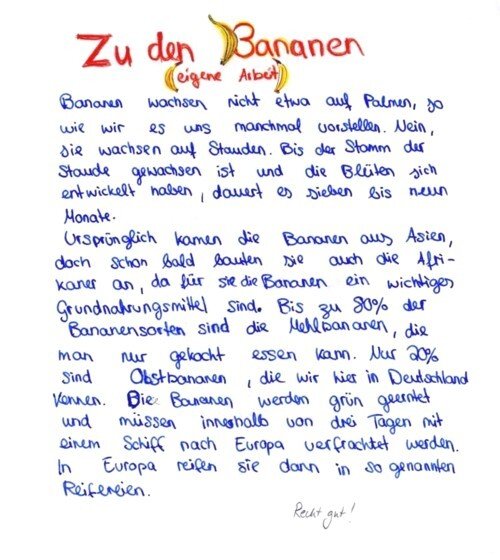 Zu den Bananen
(eigene Arbeit)
Bananen wachsen nicht etwa auf Palmen, so
wie wir es uns manchmal vorstellen. Nein,
sie wachsen auf Stauden. Bis der Stamm der
Staude gewachsen ist und die Blüten sich
entwickelt haben, dauert es sieben bis neun
Monate.
Ursprünglich kamen die Bananen aus Asien,
doch schon bald bauten sie auch die Afri-
kaner an, da für sie die Bananen ein wichtiges
Grundnahrungsmittel sind. Bis zu 80% der
Bananensorten sind die Mehlbananen, die
man nur gekocht essen kann. Nur 20%
sind Obstbananen, die wir hier in Deutschland
kennen. Die Bananen werden grün geerntet
und müssen innerhalb von drei Tagen mit
einem Schiff nach Europa verfrachtet werden.
In Europa reifen sie dann in so genannten
Reifereien.
Recht gut!